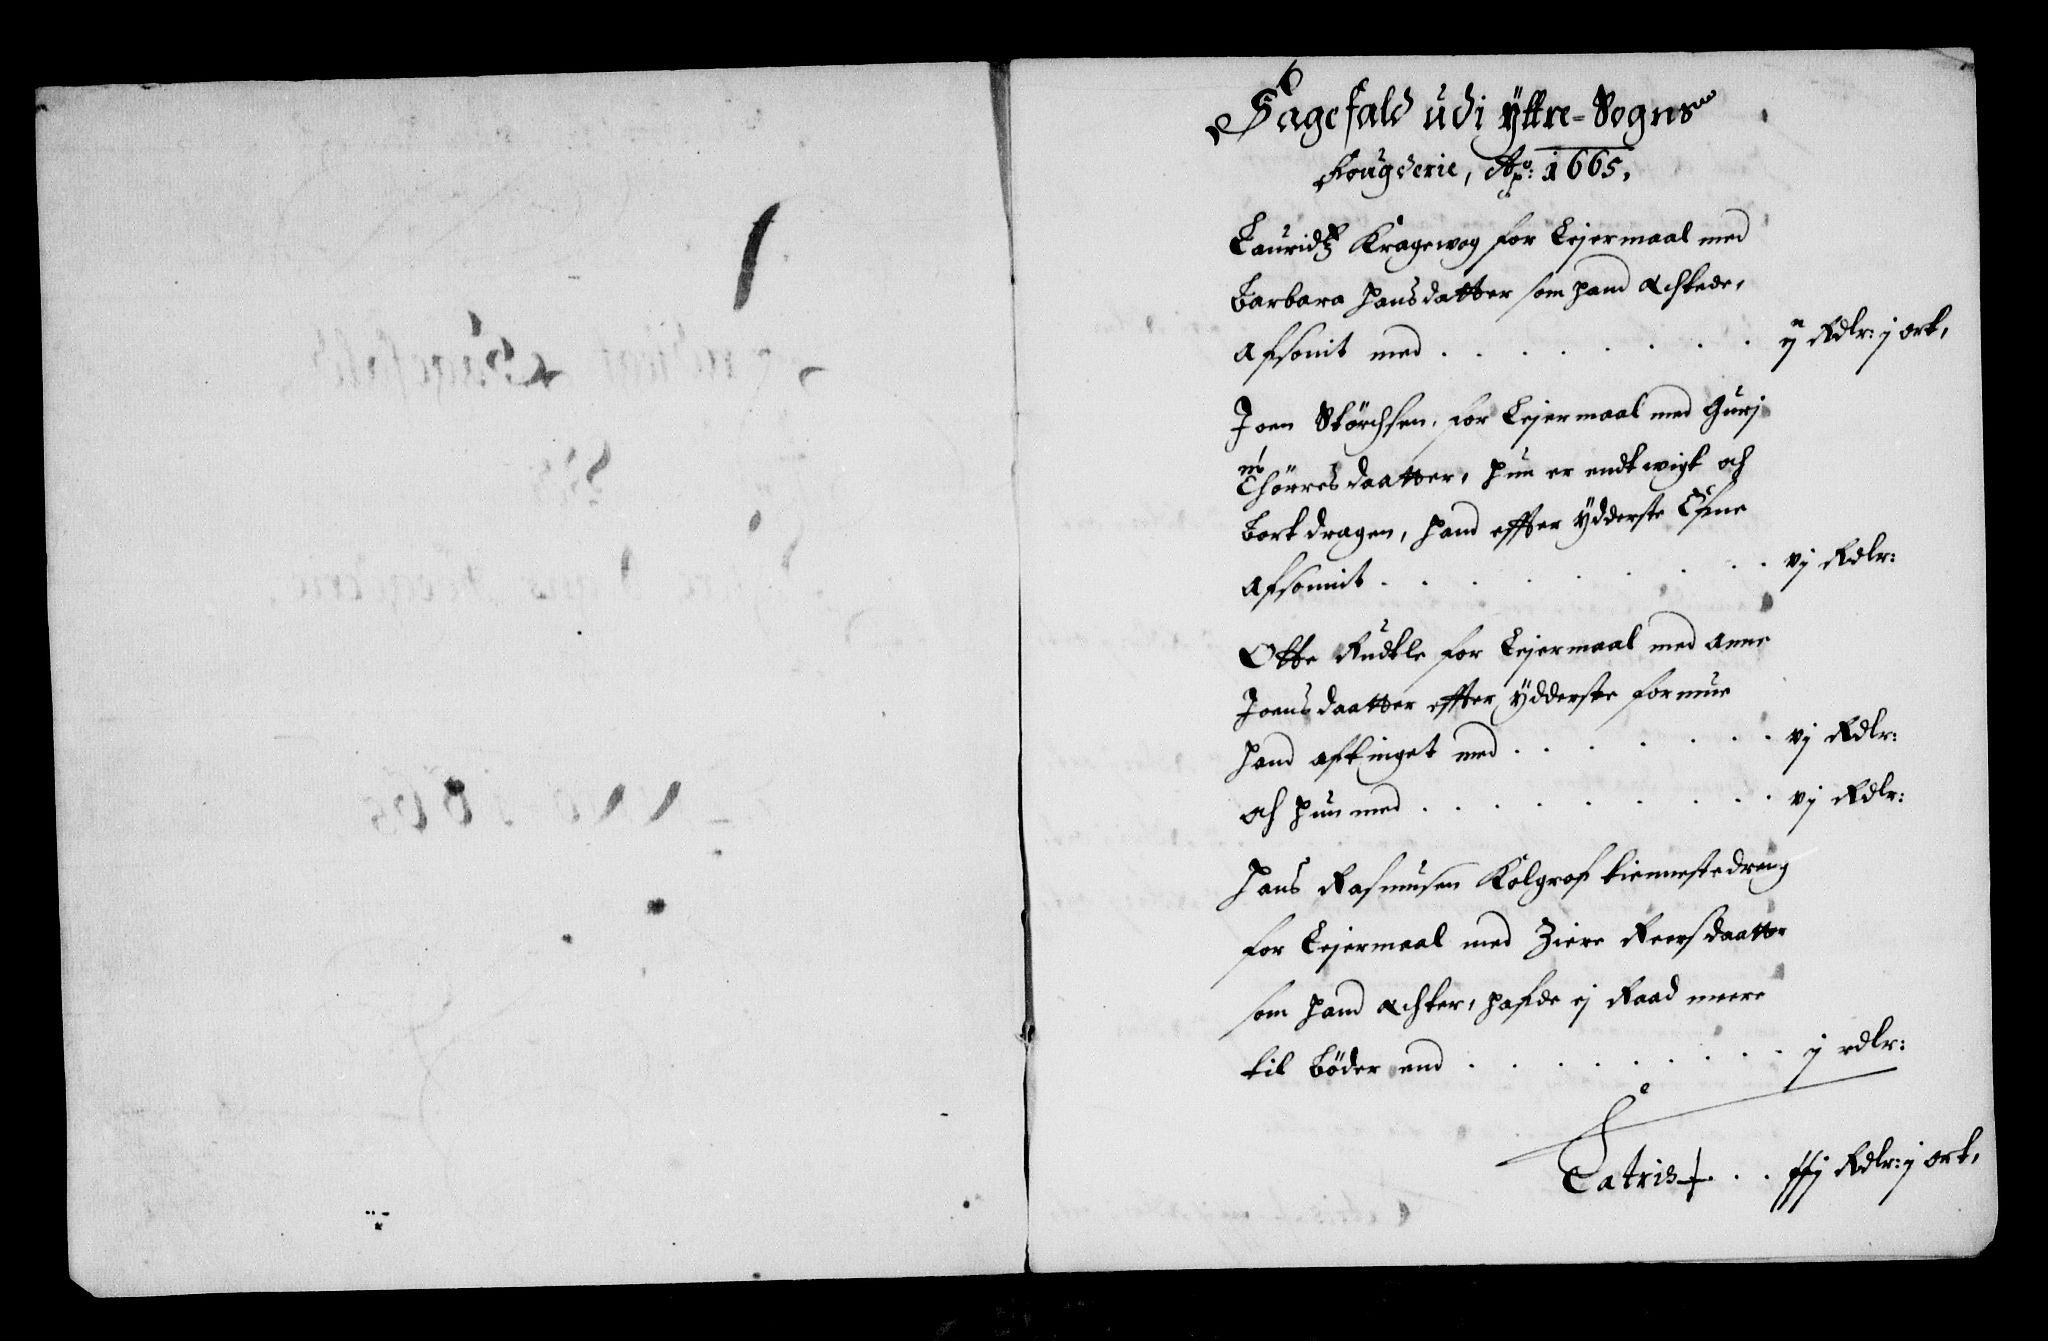 Sagefald udi Yttre-Sogns
Fougderie, Ao: 1665,
Lauridtz Kragewog for Lejermaal med
Barbara Hansdatter som hand Achtede,
Afsonit med . . . . . . . . ij Rdlr: j ort,
Joen Störchsen, for Lejermaal med Gurj
Thörresdaatter, hun er endtwigt och
bortdragen, hand effter Ydderste Efne
Afsonnit . . . . . . . . vj Rdlr:
Otte Rudtle for Lejermaal med Anne
Joensdaatter effter Ydderste formue
hand aftinget med . . . . . . . vj Rdlr:
och hun med . . . . . . . . vj Rdlr:
Hans Rasmusen Kolgrof tiennestedreng
for Lejermaal med Ziere Reersdaatter
som hand Achter, hafde ej Raad meere
til bøder end . . . . . . . . ij rdlr:
Latris . . Rdlr: j ort,